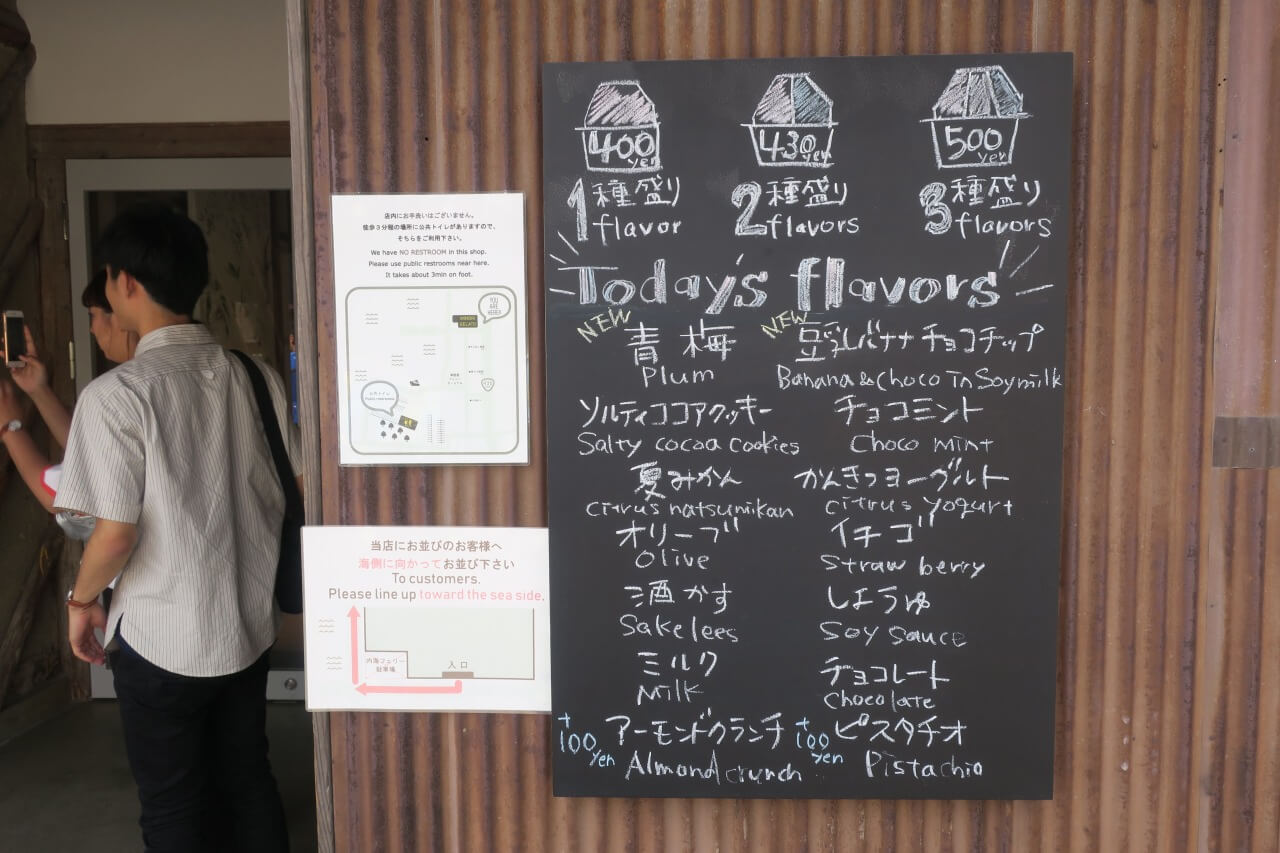 400 yen
430 yen
500 yen
1 種盛り flavor
2 種盛り flavors
3 種盛り flavors
Today's flavors
NEW
青梅
Plum
NEW
豆乳バナナチョコチップ
Banana & choco in Soymilk
ソルティココアクッキー
Salty cocoa cookies
チョコミント
Choco mint
夏みかん
citrus natsumikan
かんきつヨーグルト
citrus yogurt
オリーブ
Olive
イチゴ
Straw berry
酒かす
Sake lees
しょうゆ
Soy sauce
ミルク
Milk
チョコレート
Chocolate
+100 yen
アーモンドクランチ
Almond crunch
+100 yen
ピスタチオ
Pistachio
店内にお手洗いはございません。
徒歩3分程の場所に公共トイレがありますので、
そちらをご利用下さい。
We have NO RESTROOM in this shop.
Please use public restrooms near here.
It takes about 3min on foot.
YOU
ARE
HERE!
公共トイレ
Public restrooms
当店にお並びのお客様へ
海側に向かってお並び下さい
To customers.
Please line up toward the sea side.
内海フェリー
駐車場
入口